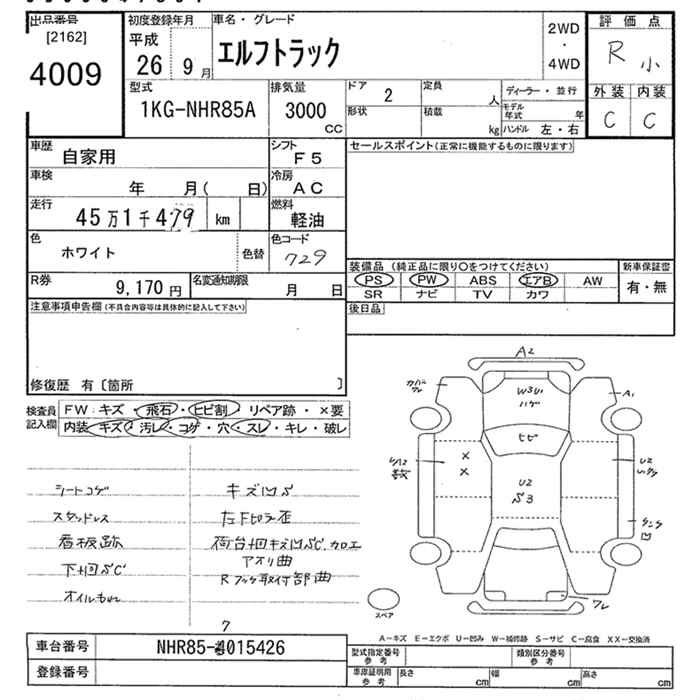 出品番号
[2162]
4009
初度登録年月
平成
26 9月
車名・グレード
エルフトラック
2WD
・
4WD
評価点
R 小
外装 内装
C C
型式
1KG-NHR85A
排気量
3000
CC
ドア 2
定員 人
形状
積載 kg
ディーラー・並行
モデル年式 年
ハンドル 左・右
車歴
自家用
シフト
F5
車検
年 月( 日)
冷房
AC
走行
45万1千479 km
燃料
軽油
色
ホワイト
色替
色コード
729
R券
9,170円
名変通知期限
月 日
セールスポイント(正常に機能するものに限ります)
装備品 (純正品に限り○をつけてください)
新車保証書
PS PW ABS エアB AW
SR ナビ TV カワ
有・無
後日品
注意事項申告欄(不具合内容等は具体的に記入して下さい)
修復歴 有〔箇所 〕
検査員
記入欄
FW:キズ・飛石・ヒビ割・リペア跡・×要
内装:キズ・汚レ・コゲ・穴・スレ・キレ・破レ
シートコゲ
スタッドレス
看板跡
下回SC
オイルもれ
キズ凹S
荷台回キズ凹SC.カロエ
アオリ曲
Rフック取付部曲
A2
カバー
ワレ
W3U1
ハゲ
A1
ヒビ
×
×
U2
S3
U2
タンク
凹
ワレ
スペア
A-キズ E-エクボ U-凹み W-補修跡 S-サビ C-腐食 XX-交換済
7
車台番号
NHR85-4015426
登録番号
型式指定番号
参考
類別区分番号
参考
車庫証明用
参考
長さ cm
幅 cm
高さ cm